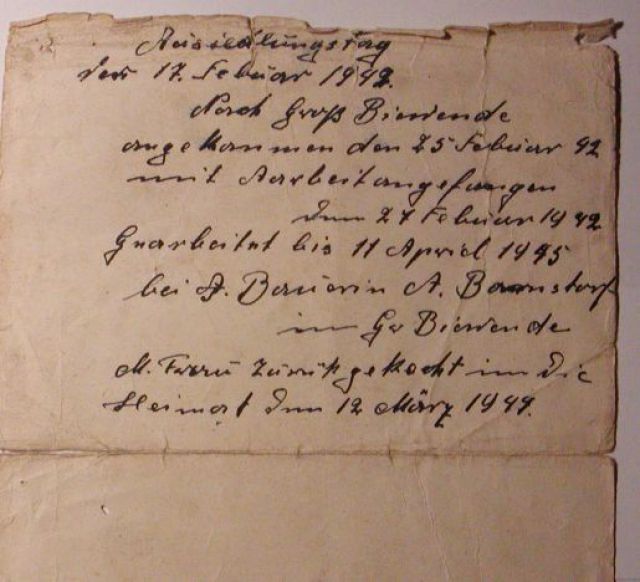 Aussiedlungstag
den 17. Febuar 1942.
Nach Groß Biewende
angekommen den 25 Febuar 42
mit Aarbeit angefangen
dem 27 Febuar 1942
Gearbeitet bis 11 Apriel 1945
bei d. Bauerin A. Barnstorf
in Gr Biewende
M. Frau Zurük gekocht in die
Heimat dem 12 März 1944.